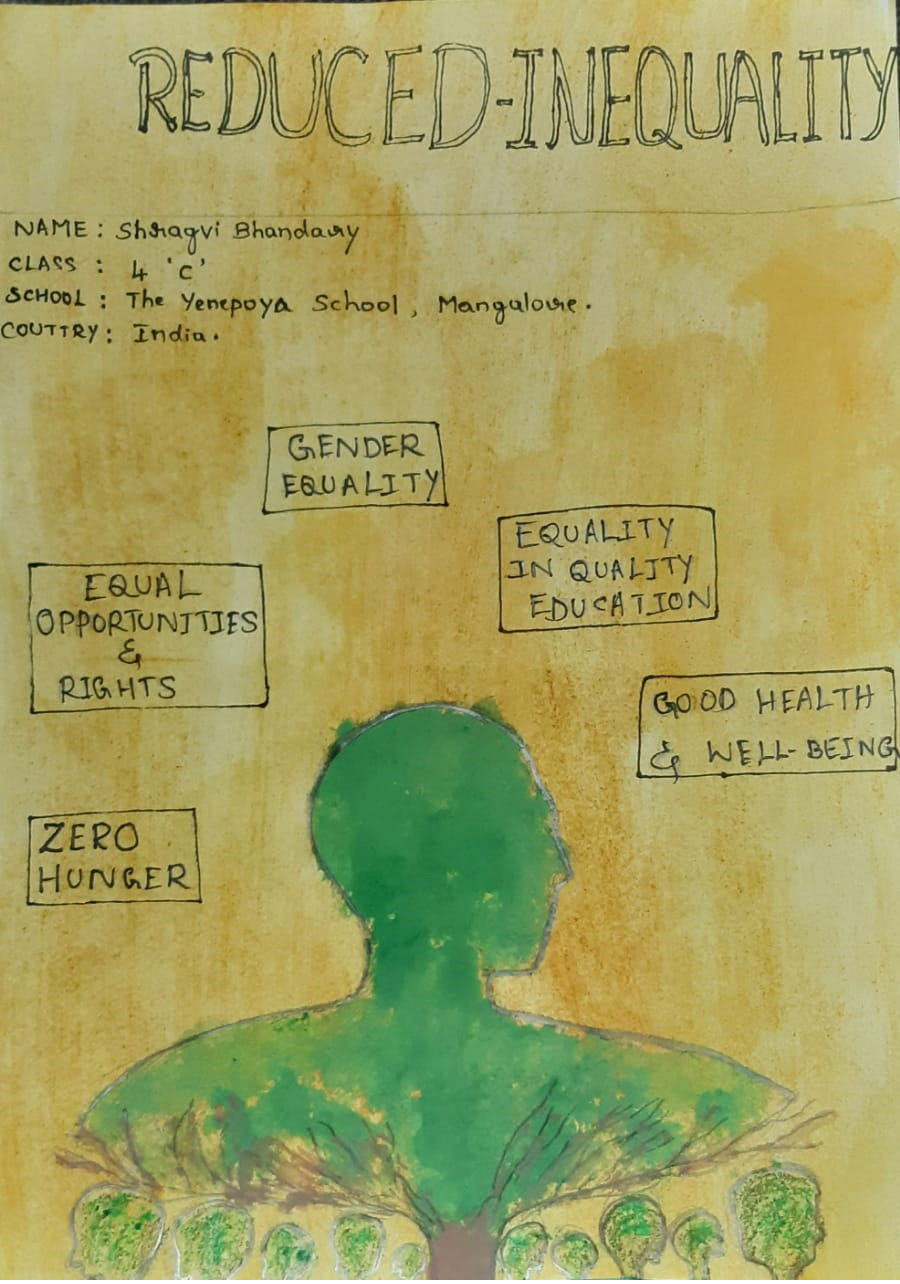 REDUCED-INEQUALITY
NAME : Shragvi Bhandary
CLASS : 4 'C'
SCHOOL : The Yenepoya School, Mangalore.
COUTTRY : India.
GENDER
EQUALITY
EQUALITY
IN QUALITY
EDUCATION
EQUAL
OPPORTUNITIES
&
RIGHTS
GOOD HEALTH
& WELL-BEING
ZERO
HUNGER